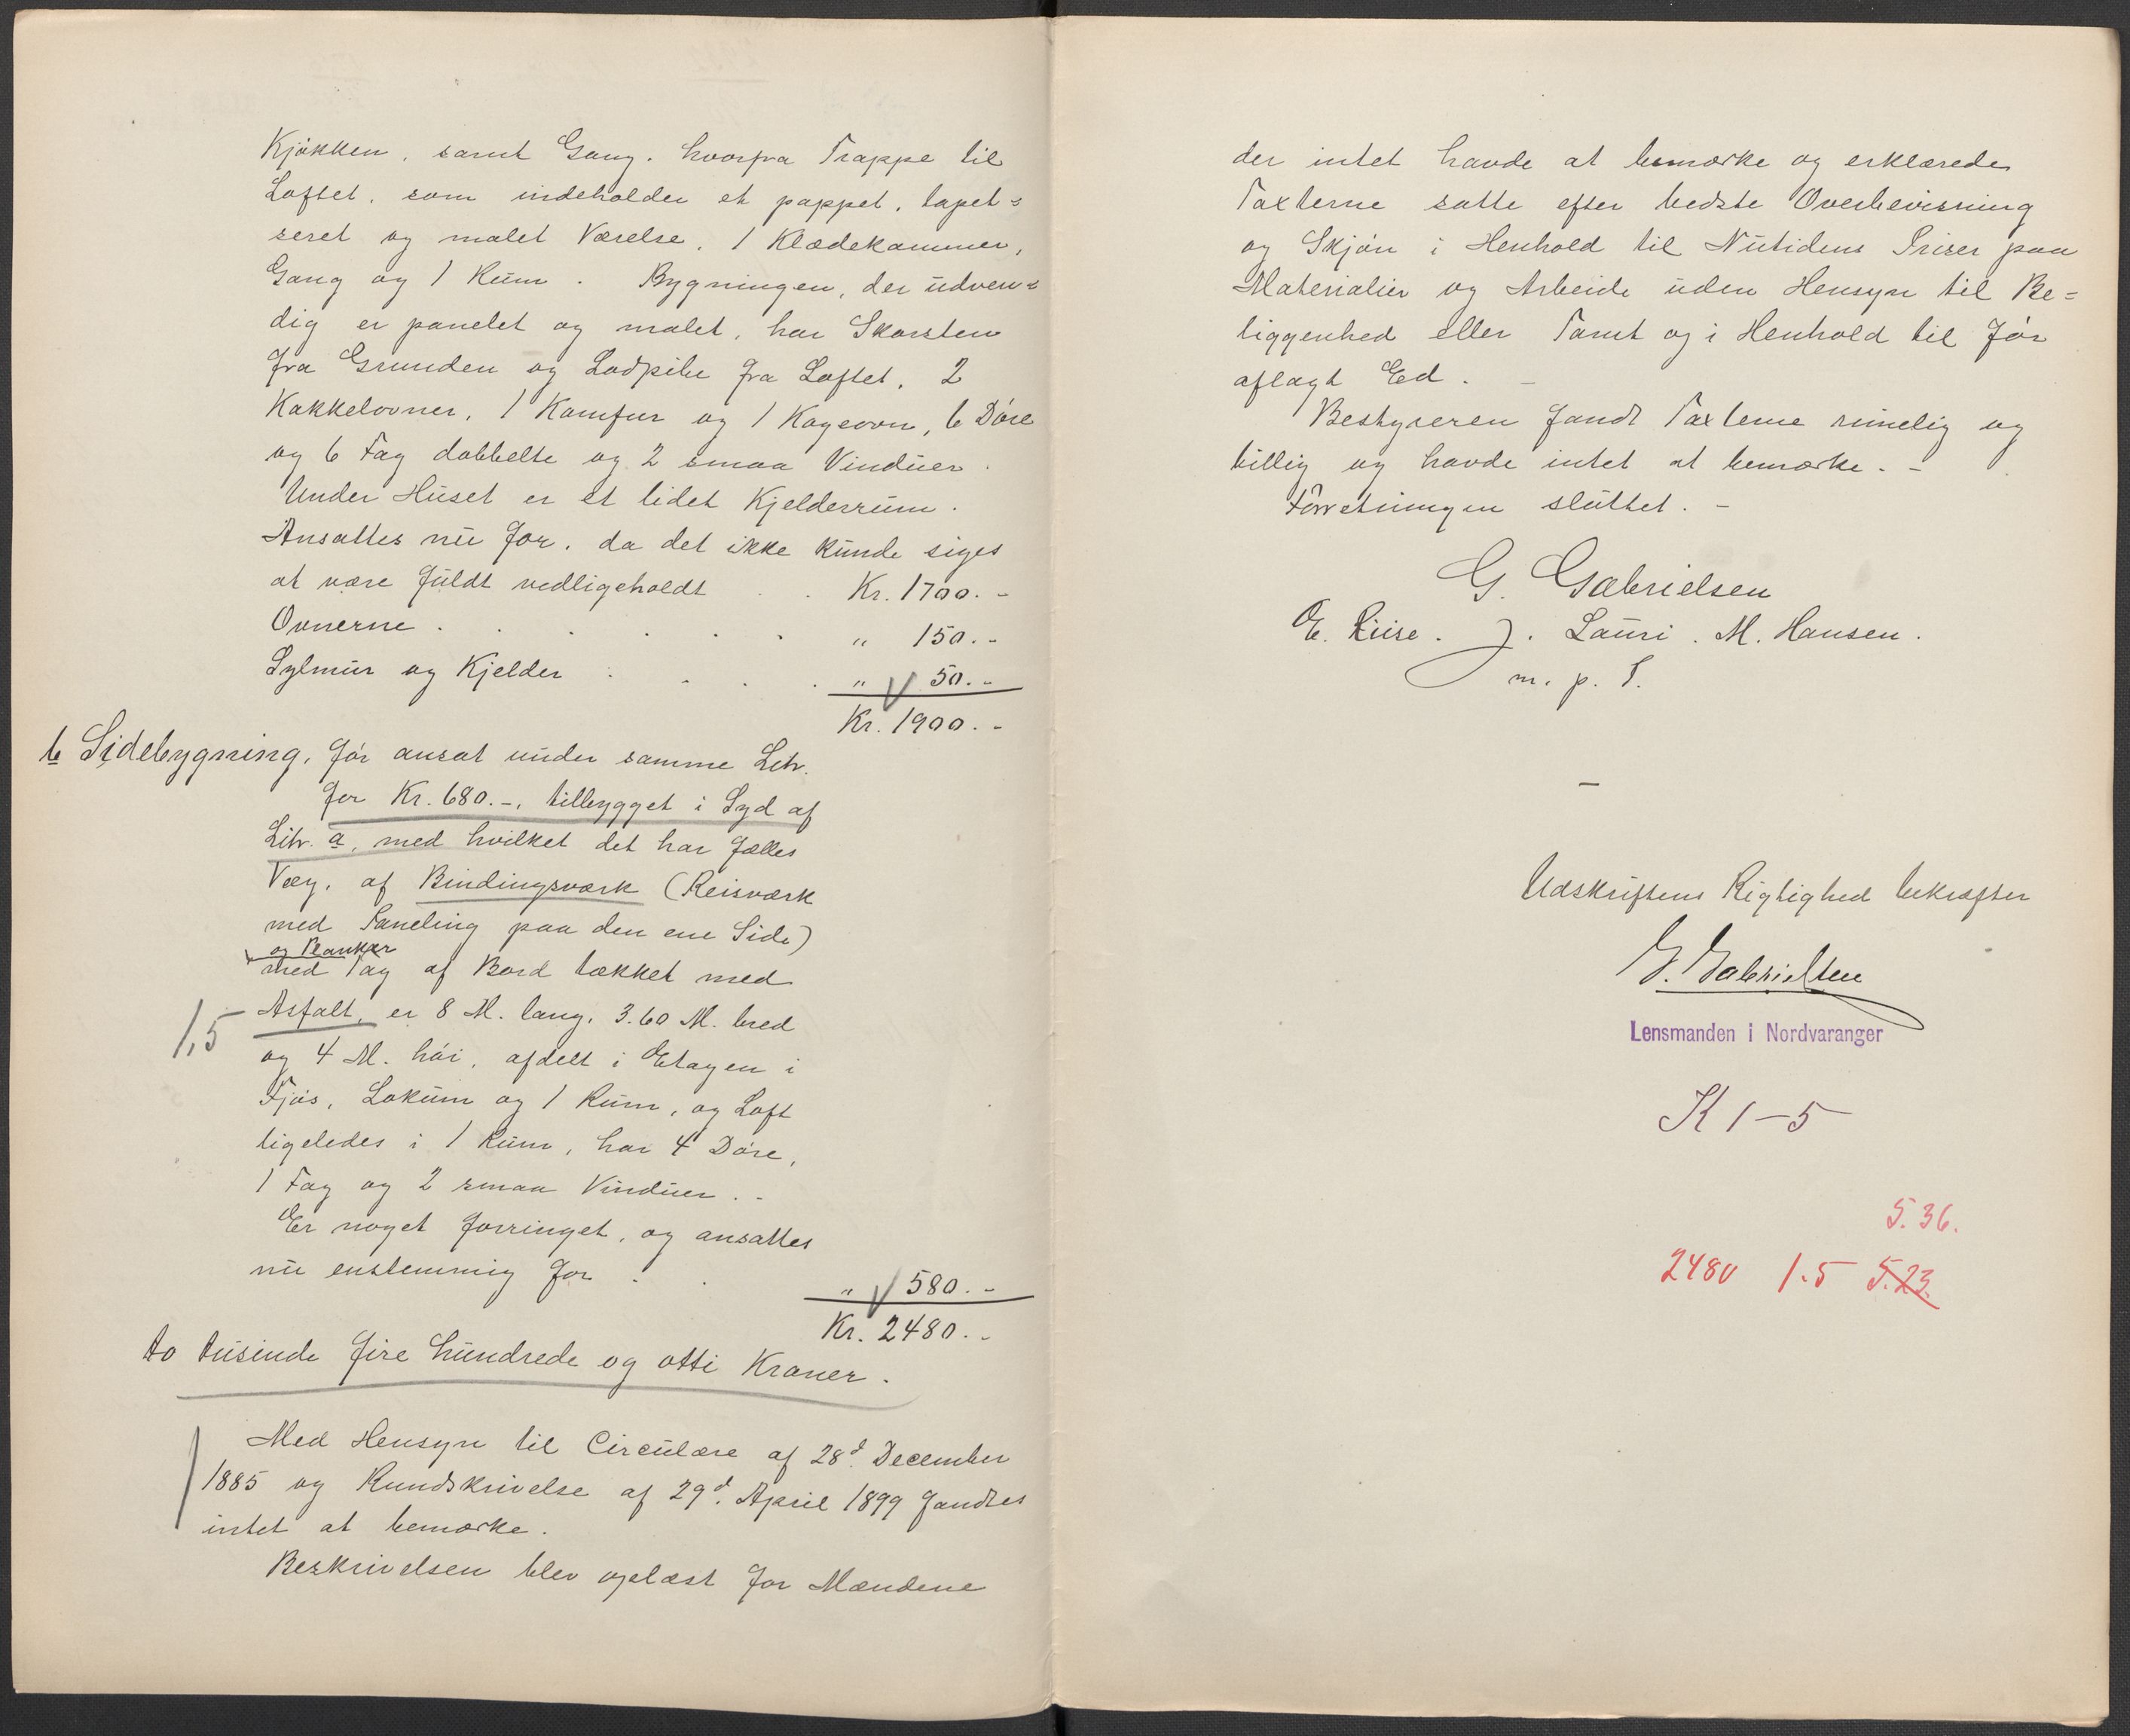 Kjøkken, samt Gang, hvorfra Trappe til
Loftet, som indeholder et pappet, tapet=
seret og malet Værelse, 1 Klædekammer,
Gang og 1 Rum. Bygningen, der udven=
dig er panelet og malet, har Skorsten
fra Grunden og Lodpibe fra Loftet, 2
Kakkelovner, 1 Komfur og 1 Kogeovn, 6 Døre
og 6 Fag dobbelte og 2 smaa Vinduer.
Under Huset er et lidet Kjelderrum.
Ansattes nu for, da det ikke kunde siges
at være fuldt vedligeholdt . . Kr. 1700.-
Ovnerne . . . . . . " 150.-
Sylmur og Kjelder . . . . " 50.-
Kr. 1900.-
b Sidebygning, før ansat under samme Litr.
for Kr. 680.-, tilbygget i Syd af
Litr. a, med hvilket det har fælles
Væg, af Bindingsværk (Reisværk
med Paneling paa den ene Side)
og Planker
med Tag af Bord tækket med
1,5
Asfalt, er 8 M. lang, 3.60 M. bred
og 4 M. høi, afdelt i Etagen i
Fjøs, Lokum og 1 Rum, og Loft
ligeledes i 1 Rum, har 4 Døre,
1 Fag og 2 smaa Vinduer.-
Er noget forringet, og ansattes
nu enstemmig for . . " 580.-
Kr. 2480.-
to tusinde fire hundrede og otti Kroner.
Med Hensyn til Circulære af 28d. December
1885 og Rundskrivelse af 29d. April 1899 fandtes
intet at bemærke.
Beskrivelsen blev oplæst for Mændene
der intet havde at bemærke og erklærede
Taxterne satte efter bedste Overbevisning
og Skjøn i Henhold til Nutidens Priser paa
Materialier og Arbeide uden Hensyn til Be=
liggenhed eller Tomt og i Henhold til før
aflagt Ed. -
Bestyreren fandt Taxterne rimelig og
billig og havde intet at bemærke. -
Forretningen sluttet. -
G. Gabrielsen
E. Riise. J. Lauri. M. Hansen.
m. p. P.
-
Udskriftens Rigtighed bekræfter
G. Gabrielsen
Lensmanden i Nordvaranger
K 1-5
5.36.
2480 1.5 5.23.